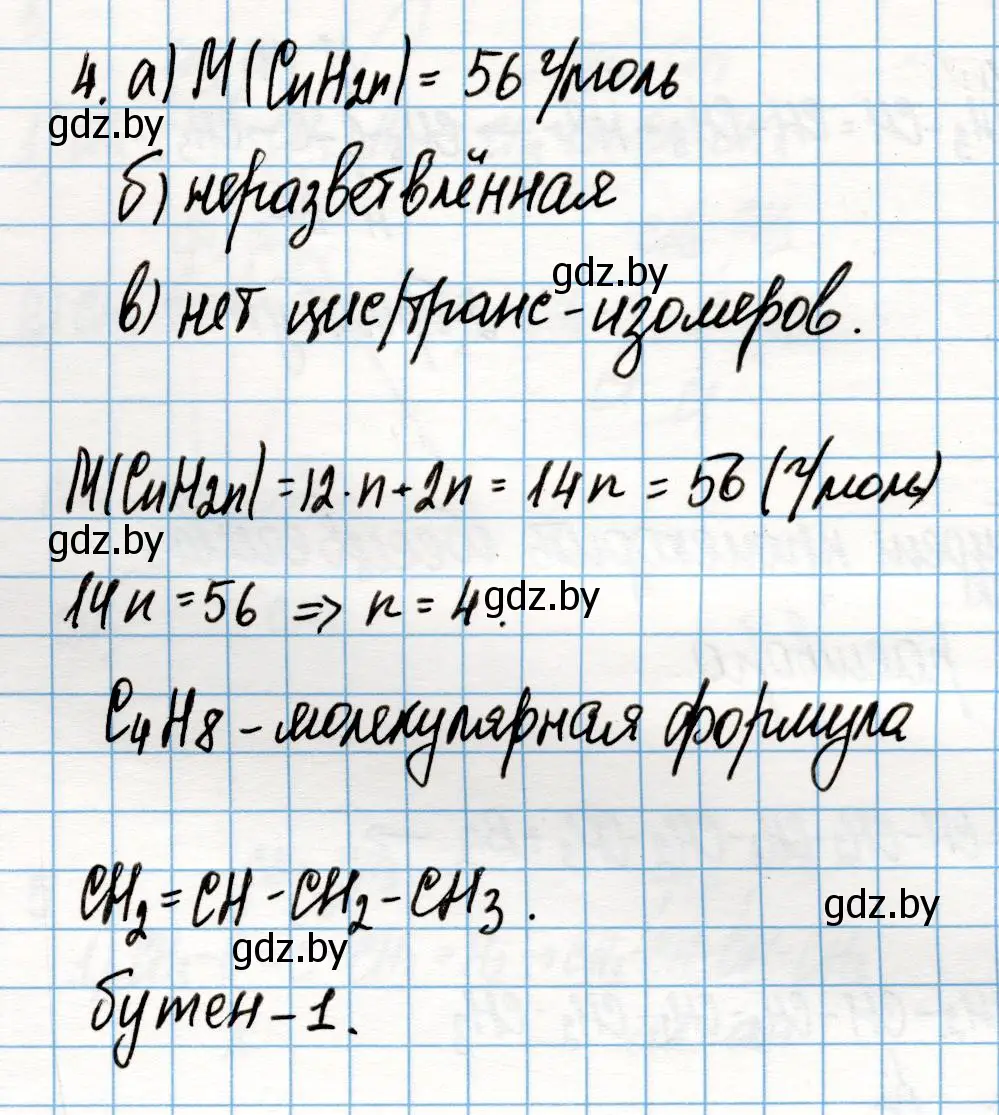 4. а) M(CnH2n) = 56 г/моль
gdz.by
б) неразветвлённая
gdz.by
в) нет цис/транс-изомеров.
M(CnH2n) = 12·n+2n = 14n = 56 (г/моль)
gdz.by
14n = 56 => n = 4.
gdz.by
C4H8 - молекулярная формула
CH2=CH-CH2-CH3.
gdz.by
gdz.by
бутен-1.